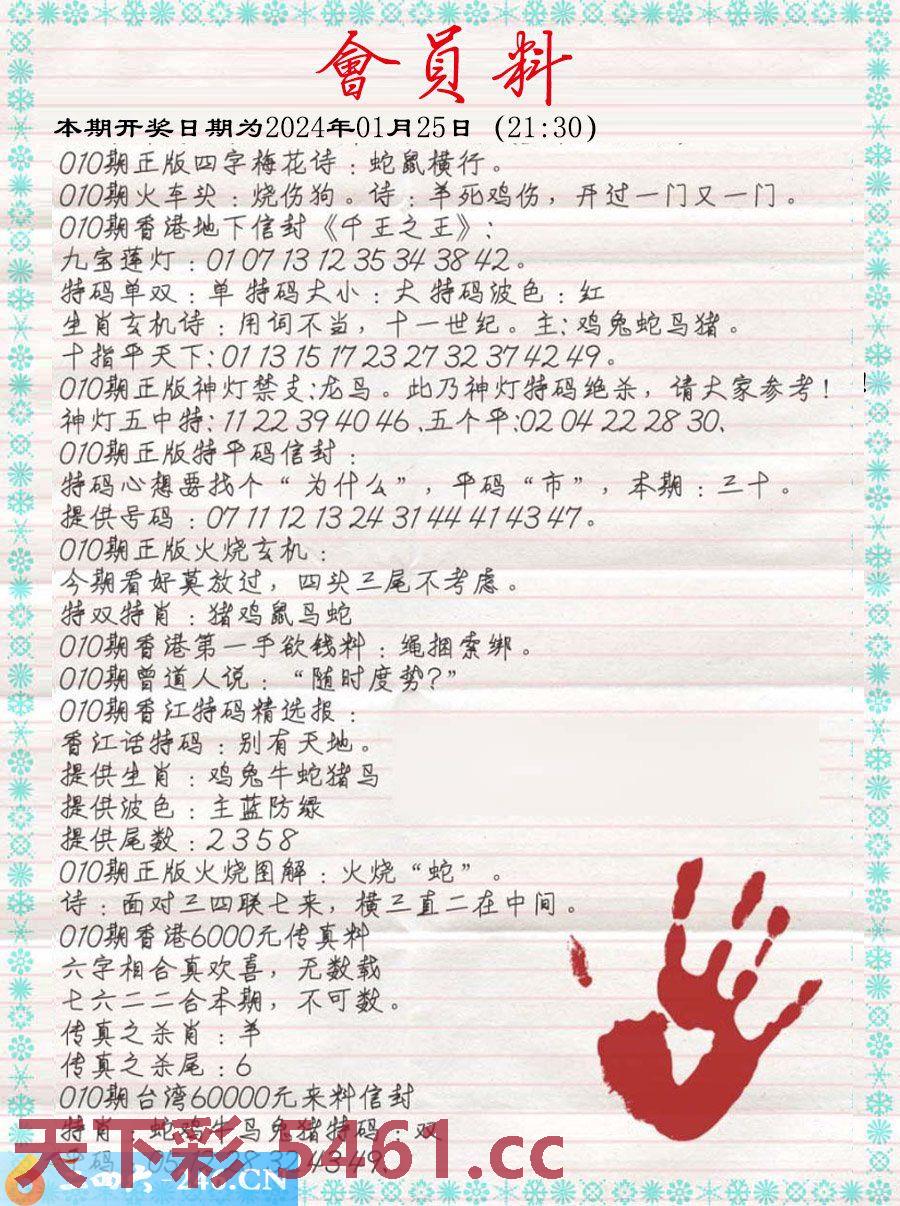 會員料
本期开奖日期为2024年01月25日 (21:30)
010期正版四字梅花诗：蛇鼠横行。
010期火车头：烧伤狗。诗：羊死鸡伤，开过一门又一门。
010期香港地下信封《千王之王》:
九宝莲灯：01 07 13 12 35 34 38 42。
特码单双：单 特码大小：大 特码波色：红
生肖玄机诗：用词不当，十一世纪。主: 鸡兔蛇马猪。
十指平天下: 01 13 15 17 23 27 32 37 42 49。
010期正版神灯禁支:龙马。此乃神灯特码绝杀，请大家参考！
神灯五中特: 11 22 39 40 46 .五个平:02 04 22 28 30.
010期正版特平码信封：
特码心想要找个“为什么”，平码“市”，本期：三十。
提供号码：07 11 12 13 24 31 44 41 43 47。
010期正版火烧玄机：
今期看好莫放过，四头三尾不考虑。
特双特肖：猪鸡鼠马蛇
010期香港第一手欲钱料：绳捆索绑。
010期曾道人说：“随时度势?”
010期香江特码精选报：
香江话特码：别有天地。
提供生肖：鸡兔牛蛇猪马
提供波色：主蓝防绿
提供尾数：2 3 5 8
010期正版火烧图解：火烧“蛇”。
诗：面对三四联七来，横三直二在中间。
010期香港6000元传真料
六字相合真欢喜，无数载
七六二二合本期，不可数。
传真之杀肖：羊
传真之杀尾：6
010期台湾60000元来料信封
特肖：蛇鸡牛马兔猪特码：双
码 05 28 32 43 49.
天下彩 5461.cc
-246.CN